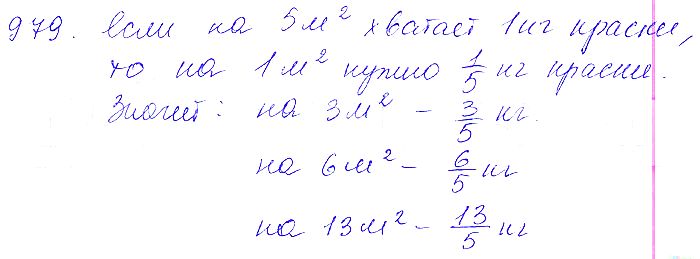 979. Если на 5м² хватает 1кг краски,
то на 1м² нужно 1/5 кг краски.
Значит: на 3м² – 3/5 кг.
на 6м² – 6/5 кг
на 13м² – 13/5 кг